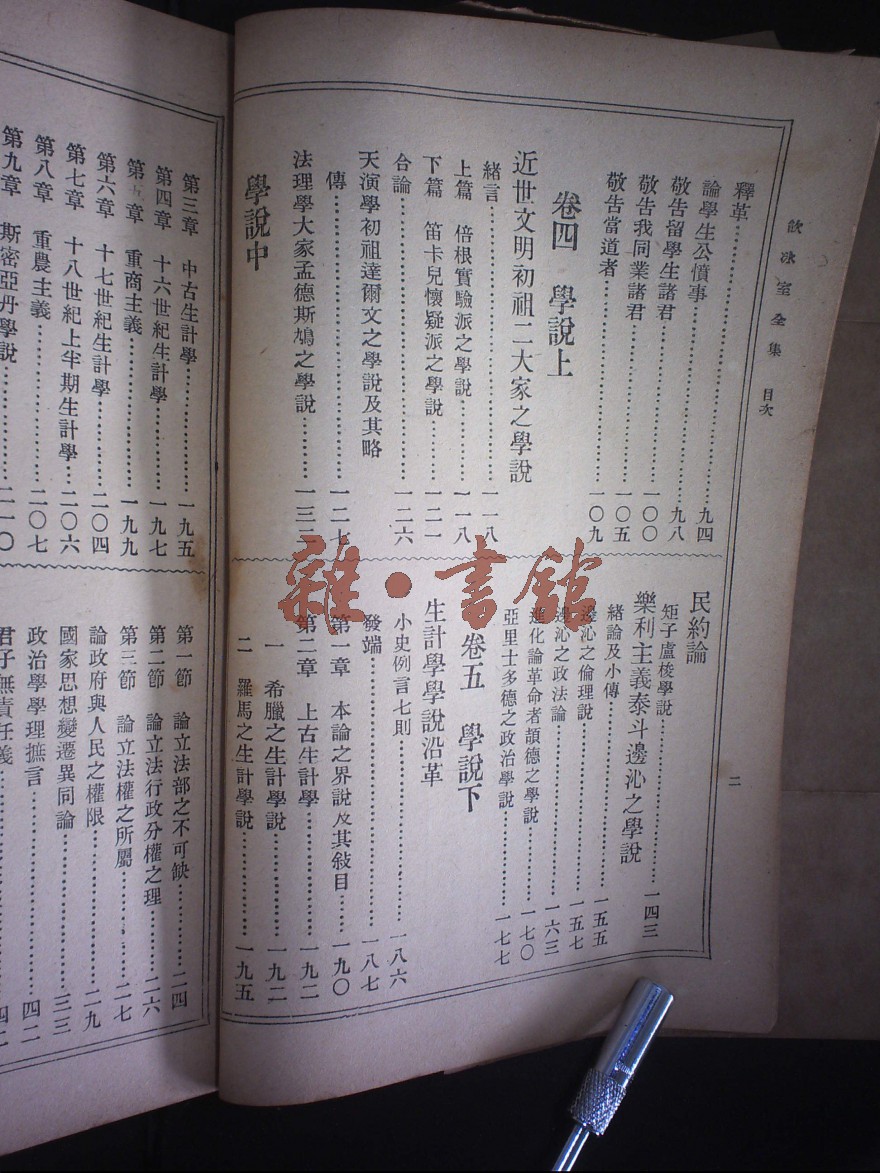 飲冰室全集　目次
釋革
論學生公憤事……九四
敬告留學生諸君……九八
敬告我同業諸君……一〇〇
敬告當道者……一〇五
一〇九
卷四　學說上
近世文明初祖二大家之學說
緒言……一一八
上篇　倍根實驗派之學說……一一八
下篇　笛卡兒懷疑派之學說……一二一
合論……一二六
天演學初祖達爾文之學說及其略
傳……一二七
法理學大家孟德斯鳩之學說……一三二
學說中
民約論
矩子盧梭學說……一四三
樂利主義泰斗邊沁之學說
緒論及小傳……一五五
邊沁之倫理說……一五七
邊沁之政法論……一六三
進化論革命者頡德之學說……一七〇
亞里士多德之政治學說……一七七
卷五　學說下
生計學學說沿革
小史例言七則……一八六
發端……一八七
第一章　本論之界說及其敍目……一九〇
第二章　上古生計學……一九二
一　希臘之生計學說……一九二
二　羅馬之生計學說……一九五
二
第三章　中古生計學……一九五
第四章　十六世紀生計學……一九七
第五章　重商主義……一九九
第六章　十七世紀生計學……二〇四
第七章　十八世紀上半期生計學……二〇六
第八章　重農主義……二〇七
第九章　斯密亞丹學說……二一〇
第一節　論立法部之不可缺……二四
第二節　論立法行政分權之理……二六
第三節　論立法權之所屬……二七
論政府與人民之權限……二九
國家思想變遷異同論……三三
政治學學理摭言……四二
君子無責任義……四二
雜·書館